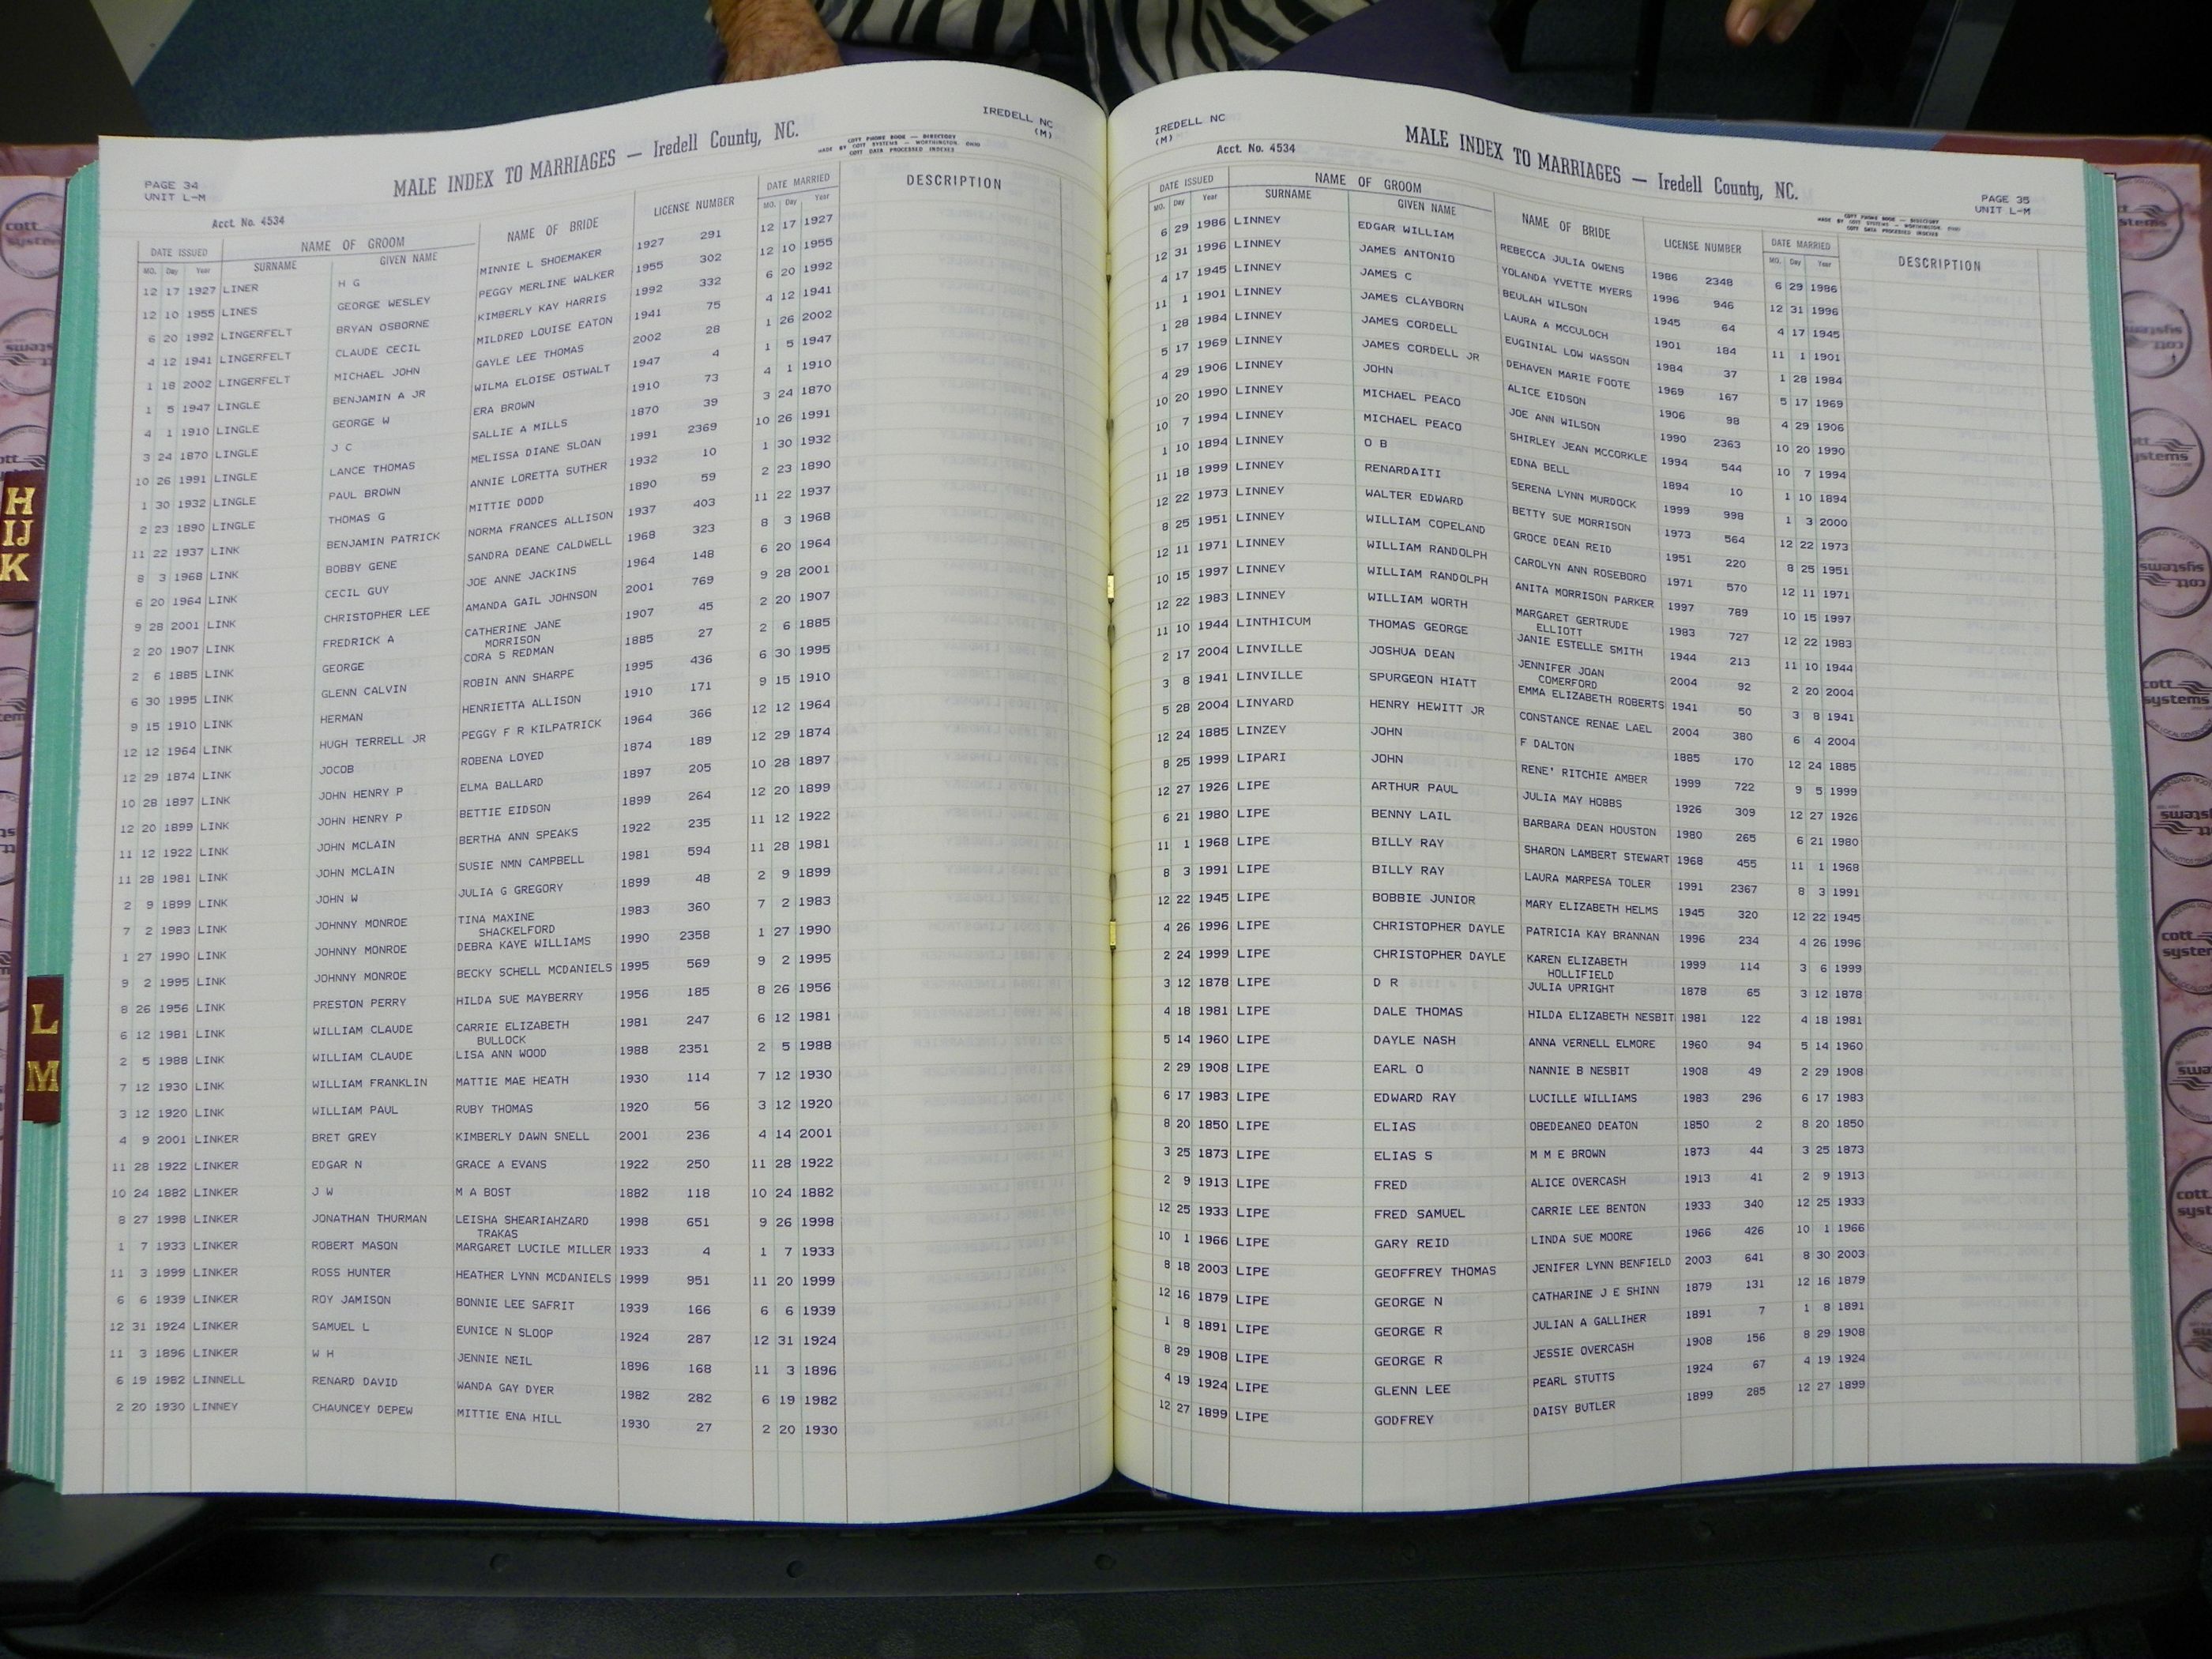 IREDELL NC
(M)
MALE INDEX TO MARRIAGES — Iredell County, NC.
COTT PHONE BOOK — DIRECTORY
MADE BY COTT SYSTEMS — WORTHINGTON, OHIO
COTT DATA PROCESSED INDEXES
PAGE 34
UNIT L-M
Acct. No. 4534
DATE ISSUED NAME OF GROOM NAME OF BRIDE LICENSE NUMBER DATE MARRIED DESCRIPTION
MO. Day Year SURNAME GIVEN NAME MO. Day Year
12 17 1927 LINER H G MINNIE L SHOEMAKER 1927 291 12 17 1927
12 10 1955 LINES GEORGE WESLEY PEGGY MERLINE WALKER 1955 302 12 10 1955
6 20 1992 LINGERFELT BRYAN OSBORNE KIMBERLY KAY HARRIS 1992 332 6 20 1992
4 12 1941 LINGERFELT CLAUDE CECIL MILDRED LOUISE EATON 1941 75 4 12 1941
1 18 2002 LINGERFELT MICHAEL JOHN GAYLE LEE THOMAS 2002 28 1 26 2002
1 5 1947 LINGLE BENJAMIN A JR WILMA ELOISE OSTWALT 1947 4 1 5 1947
4 1 1910 LINGLE GEORGE W ERA BROWN 1910 73 4 1 1910
3 24 1870 LINGLE J C SALLIE A MILLS 1870 39 3 24 1870
10 26 1991 LINGLE LANCE THOMAS MELISSA DIANE SLOAN 1991 2369 10 26 1991
1 30 1932 LINGLE PAUL BROWN ANNIE LORETTA SUTHER 1932 10 1 30 1932
2 23 1890 LINGLE THOMAS G MITTIE DODD 1890 59 2 23 1890
11 22 1937 LINK BENJAMIN PATRICK NORMA FRANCES ALLISON 1937 403 11 22 1937
8 3 1968 LINK BOBBY GENE SANDRA DEANE CALDWELL 1968 323 8 3 1968
6 20 1964 LINK CECIL GUY JOE ANNE JACKINS 1964 148 6 20 1964
9 28 2001 LINK CHRISTOPHER LEE AMANDA GAIL JOHNSON 2001 769 9 28 2001
2 20 1907 LINK FREDRICK A CATHERINE JANE 1907 45 2 20 1907
MORRISON
2 6 1885 LINK GEORGE CORA S REDMAN 1885 27 2 6 1885
6 30 1995 LINK GLENN CALVIN ROBIN ANN SHARPE 1995 436 6 30 1995
9 15 1910 LINK HERMAN HENRIETTA ALLISON 1910 171 9 15 1910
12 12 1964 LINK HUGH TERRELL JR PEGGY F R KILPATRICK 1964 366 12 12 1964
12 29 1874 LINK JOCOB ROBENA LOYED 1874 189 12 29 1874
10 28 1897 LINK JOHN HENRY P ELMA BALLARD 1897 205 10 28 1897
12 20 1899 LINK JOHN HENRY P BETTIE EIDSON 1899 264 12 20 1899
11 12 1922 LINK JOHN MCLAIN BERTHA ANN SPEAKS 1922 235 11 12 1922
11 28 1981 LINK JOHN MCLAIN SUSIE NMN CAMPBELL 1981 594 11 28 1981
2 9 1899 LINK JOHN W JULIA G GREGORY 1899 48 2 9 1899
7 2 1983 LINK JOHNNY MONROE TINA MAXINE 1983 360 7 2 1983
SHACKELFORD
1 27 1990 LINK JOHNNY MONROE DEBRA KAYE WILLIAMS 1990 2358 1 27 1990
9 2 1995 LINK JOHNNY MONROE BECKY SCHELL MCDANIELS 1995 569 9 2 1995
8 26 1956 LINK PRESTON PERRY HILDA SUE MAYBERRY 1956 185 8 26 1956
6 12 1981 LINK WILLIAM CLAUDE CARRIE ELIZABETH 1981 247 6 12 1981
BULLOCK
2 5 1988 LINK WILLIAM CLAUDE LISA ANN WOOD 1988 2351 2 5 1988
7 12 1930 LINK WILLIAM FRANKLIN MATTIE MAE HEATH 1930 114 7 12 1930
3 12 1920 LINK WILLIAM PAUL RUBY THOMAS 1920 56 3 12 1920
4 9 2001 LINKER BRET GREY KIMBERLY DAWN SNELL 2001 236 4 14 2001
11 28 1922 LINKER EDGAR N GRACE A EVANS 1922 250 11 28 1922
10 24 1882 LINKER J W M A BOST 1882 118 10 24 1882
8 27 1998 LINKER JONATHAN THURMAN LEISHA SHEARIAHZARD 1998 651 9 26 1998
TRAKAS
1 7 1933 LINKER ROBERT MASON MARGARET LUCILE MILLER 1933 4 1 7 1933
11 3 1999 LINKER ROSS HUNTER HEATHER LYNN MCDANIELS 1999 951 11 20 1999
6 6 1939 LINKER ROY JAMISON BONNIE LEE SAFRIT 1939 166 6 6 1939
12 31 1924 LINKER SAMUEL L EUNICE N SLOOP 1924 287 12 31 1924
11 3 1896 LINKER W H JENNIE NEIL 1896 168 11 3 1896
6 19 1982 LINNELL RENARD DAVID WANDA GAY DYER 1982 282 6 19 1982
2 20 1930 LINNEY CHAUNCEY DEPEW MITTIE ENA HILL 1930 27 2 20 1930
IREDELL NC
(M)
Acct. No. 4534
MALE INDEX TO MARRIAGES — Iredell County, NC.
PAGE 35
UNIT L-M
COTT PHONE BOOK — DIRECTORY
MADE BY COTT SYSTEMS — WORTHINGTON, OHIO
COTT DATA PROCESSED INDEXES
DATE ISSUED NAME OF GROOM NAME OF BRIDE LICENSE NUMBER DATE MARRIED DESCRIPTION
MO. Day Year SURNAME GIVEN NAME MO. Day Year
6 29 1986 LINNEY EDGAR WILLIAM REBECCA JULIA OWENS 1986 2348 6 29 1986
12 31 1996 LINNEY JAMES ANTONIO YOLANDA YVETTE MYERS 1996 946 12 31 1996
4 17 1945 LINNEY JAMES C BEULAH WILSON 1945 64 4 17 1945
11 1 1901 LINNEY JAMES CLAYBORN LAURA A MCCULOCH 1901 184 11 1 1901
1 28 1984 LINNEY JAMES CORDELL EUGINIAL LOW WASSON 1984 37 1 28 1984
5 17 1969 LINNEY JAMES CORDELL JR DEHAVEN MARIE FOOTE 1969 167 5 17 1969
4 29 1906 LINNEY JOHN ALICE EIDSON 1906 98 4 29 1906
10 20 1990 LINNEY MICHAEL PEACO JOE ANN WILSON 1990 2363 10 20 1990
10 7 1994 LINNEY MICHAEL PEACO SHIRLEY JEAN MCCORKLE 1994 544 10 7 1994
1 10 1894 LINNEY O B EDNA BELL 1894 10 1 10 1894
11 18 1999 LINNEY RENARDAITI SERENA LYNN MURDOCK 1999 998 1 3 2000
12 22 1973 LINNEY WALTER EDWARD BETTY SUE MORRISON 1973 564 12 22 1973
8 25 1951 LINNEY WILLIAM COPELAND GROCE DEAN REID 1951 220 8 25 1951
12 11 1971 LINNEY WILLIAM RANDOLPH CAROLYN ANN ROSEBORO 1971 570 12 11 1971
10 15 1997 LINNEY WILLIAM RANDOLPH ANITA MORRISON PARKER 1997 789 10 15 1997
12 22 1983 LINNEY WILLIAM WORTH MARGARET GERTRUDE 1983 727 12 22 1983
ELLIOTT
11 10 1944 LINTHICUM THOMAS GEORGE JANIE ESTELLE SMITH 1944 213 11 10 1944
2 17 2004 LINVILLE JOSHUA DEAN JENNIFER JOAN 2004 92 2 20 2004
COMERFORD
3 8 1941 LINVILLE SPURGEON HIATT EMMA ELIZABETH ROBERTS 1941 50 3 8 1941
5 28 2004 LINYARD HENRY HEWITT JR CONSTANCE RENAE LAEL 2004 380 6 4 2004
12 24 1885 LINZEY JOHN F DALTON 1885 170 12 24 1885
8 25 1999 LIPARI JOHN RENE' RITCHIE AMBER 1999 722 9 5 1999
12 27 1926 LIPE ARTHUR PAUL JULIA MAY HOBBS 1926 309 12 27 1926
6 21 1980 LIPE BENNY LAIL BARBARA DEAN HOUSTON 1980 265 6 21 1980
11 1 1968 LIPE BILLY RAY SHARON LAMBERT STEWART 1968 455 11 1 1968
8 3 1991 LIPE BILLY RAY LAURA MARPESA TOLER 1991 2367 8 3 1991
12 22 1945 LIPE BOBBIE JUNIOR MARY ELIZABETH HELMS 1945 320 12 22 1945
4 26 1996 LIPE CHRISTOPHER DAYLE PATRICIA KAY BRANNAN 1996 234 4 26 1996
2 24 1999 LIPE CHRISTOPHER DAYLE KAREN ELIZABETH 1999 114 3 6 1999
HOLLIFIELD
3 12 1878 LIPE D R JULIA UPRIGHT 1878 65 3 12 1878
4 18 1981 LIPE DALE THOMAS HILDA ELIZABETH NESBIT 1981 122 4 18 1981
5 14 1960 LIPE DAYLE NASH ANNA VERNELL ELMORE 1960 94 5 14 1960
2 29 1908 LIPE EARL O NANNIE B NESBIT 1908 49 2 29 1908
6 17 1983 LIPE EDWARD RAY LUCILLE WILLIAMS 1983 296 6 17 1983
8 20 1850 LIPE ELIAS OBEDEANEO DEATON 1850 2 8 20 1850
3 25 1873 LIPE ELIAS S M M E BROWN 1873 44 3 25 1873
2 9 1913 LIPE FRED ALICE OVERCASH 1913 41 2 9 1913
12 25 1933 LIPE FRED SAMUEL CARRIE LEE BENTON 1933 340 12 25 1933
10 1 1966 LIPE GARY REID LINDA SUE MOORE 1966 426 10 1 1966
8 18 2003 LIPE GEOFFREY THOMAS JENIFER LYNN BENFIELD 2003 641 8 30 2003
12 16 1879 LIPE GEORGE N CATHARINE J E SHINN 1879 131 12 16 1879
1 8 1891 LIPE GEORGE R JULIAN A GALLIHER 1891 7 1 8 1891
8 29 1908 LIPE GEORGE R JESSIE OVERCASH 1908 156 8 29 1908
4 19 1924 LIPE GLENN LEE PEARL STUTTS 1924 67 4 19 1924
12 27 1899 LIPE GODFREY DAISY BUTLER 1899 285 12 27 1899
H
IJ
K
L
M
cott
systems